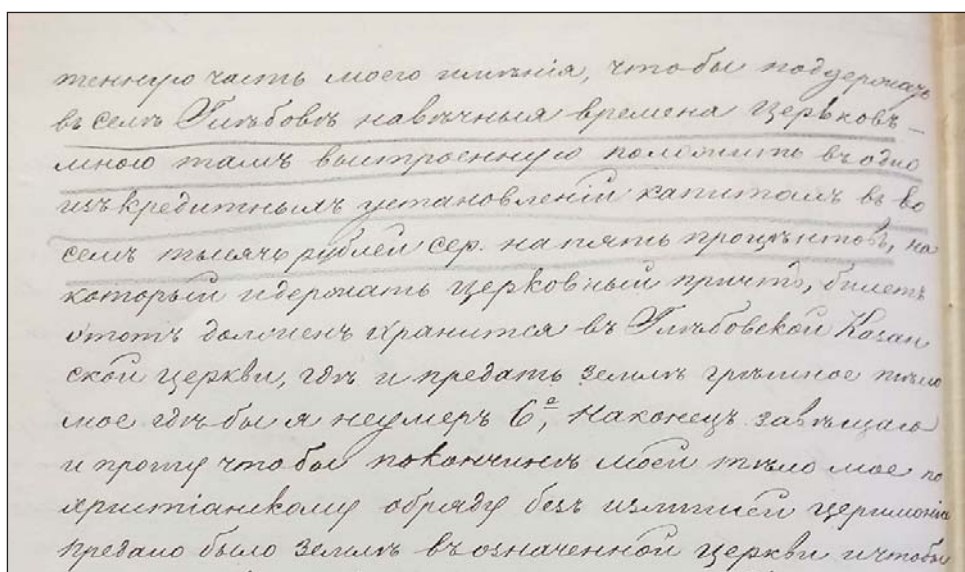 тенную часть моего имѣнія, чтобы поддержать
въ селѣ Глѣбовѣ навѣчныя времена церьковъ –
мною тамъ выстроенную положить въ одно
изъ кредитныхъ установленій капиталъ въ во
семь тысячь рублей сер. на пять процѣнтовъ, на
который и держать церковный причтъ, билетъ
этотъ долженъ хранится въ Глѣбовской Казан
ской церкви, гдѣ и предать землѣ грѣшное тѣло
мое гдѣ бы я неумеръ 6е, Наконецъ завѣщаю
и прошу чтобы покончинѣ моей тѣло мое по
христіанскому обряду безъ излишней церимоніи
предано было землѣ въ означенной церкви и чтобы